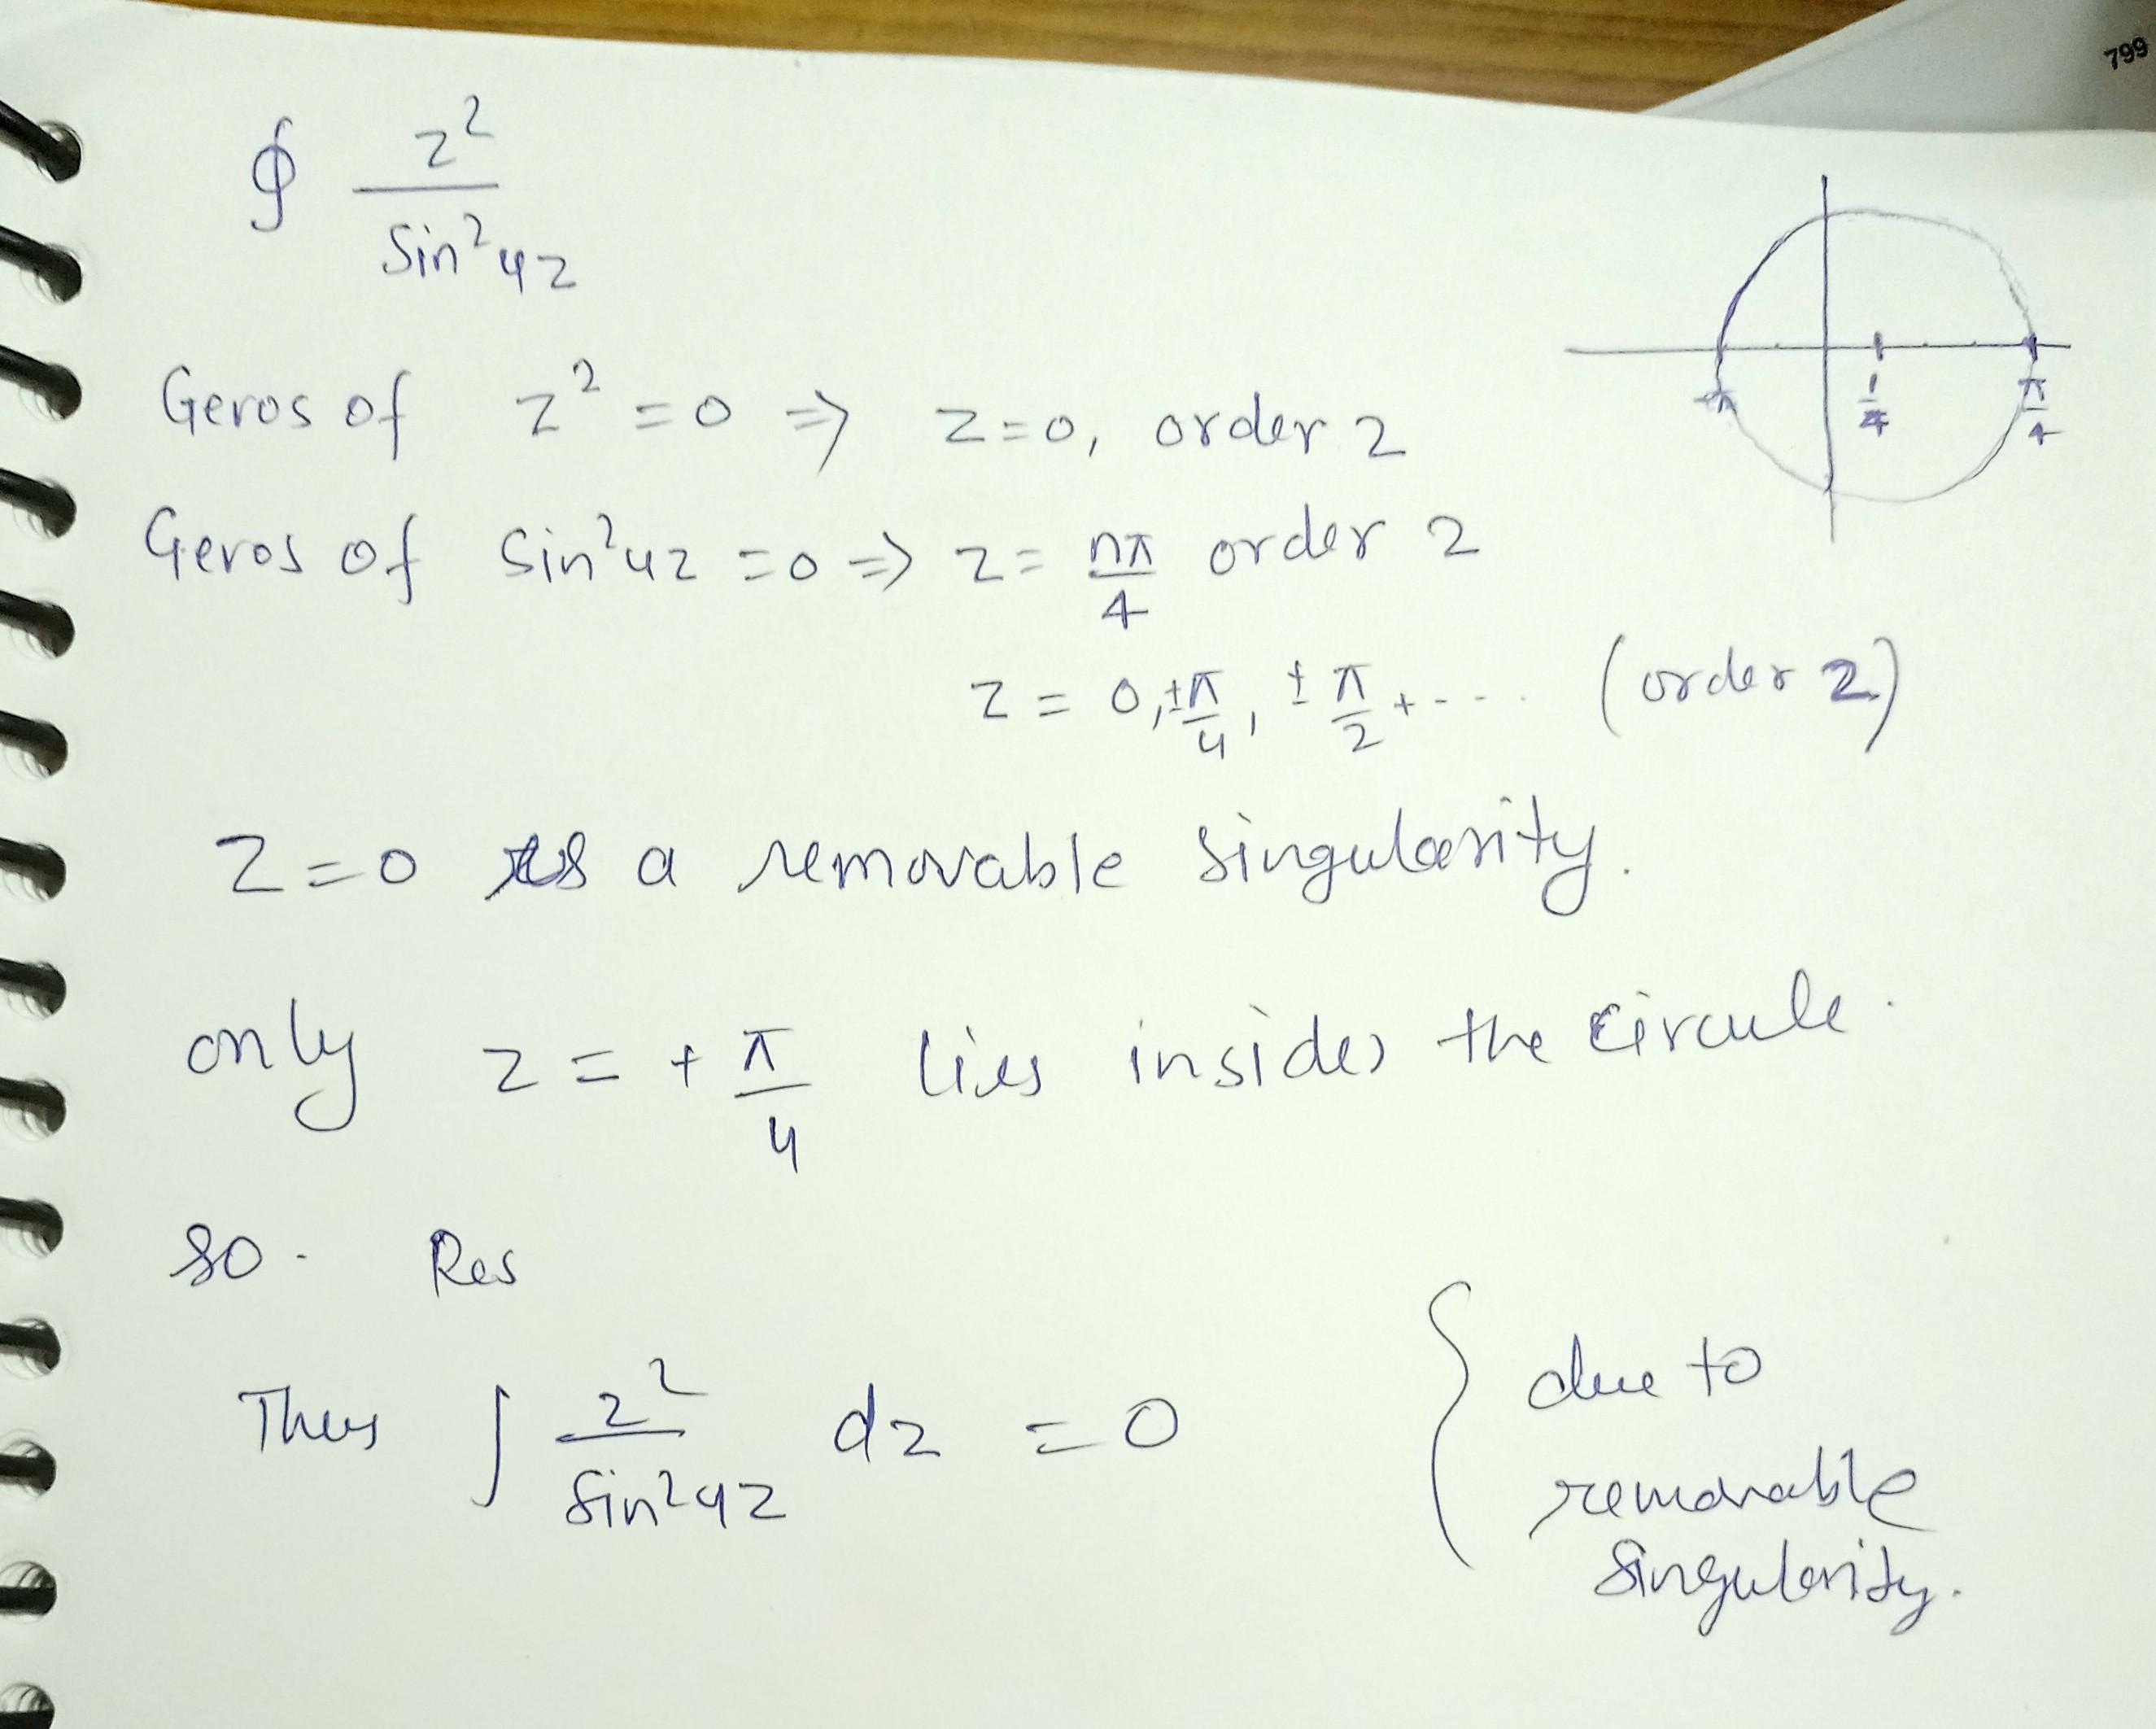 799
∮ z²
sin²4z
Zeros of z² = 0 ⇒ z=0, order 2
Zeros of sin²4z = 0 ⇒ z = nπ/4 order 2
z = 0, ±π/4, ±π/2 + .... (order 2)
z=0 is a removable singularity.
only z = + π/4 lies insides the circule.
so. Res
Thus ∫ z²/sin²4z dz = 0 { due to
removable
singularity.
1/4
π/4